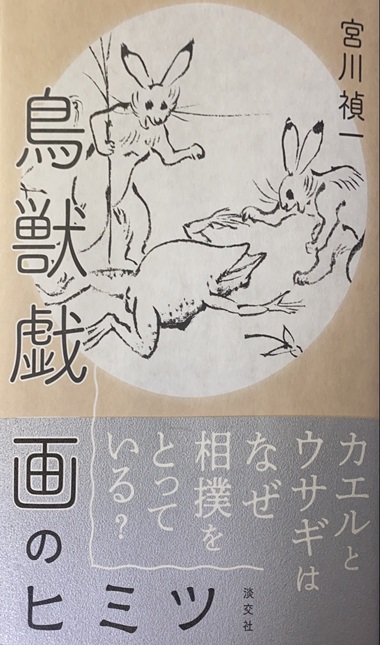 宮川禎一
鳥獣戯画の
ヒミツ
カエルと
ウサギは
なぜ
相撲を
とって
いる？
淡交社